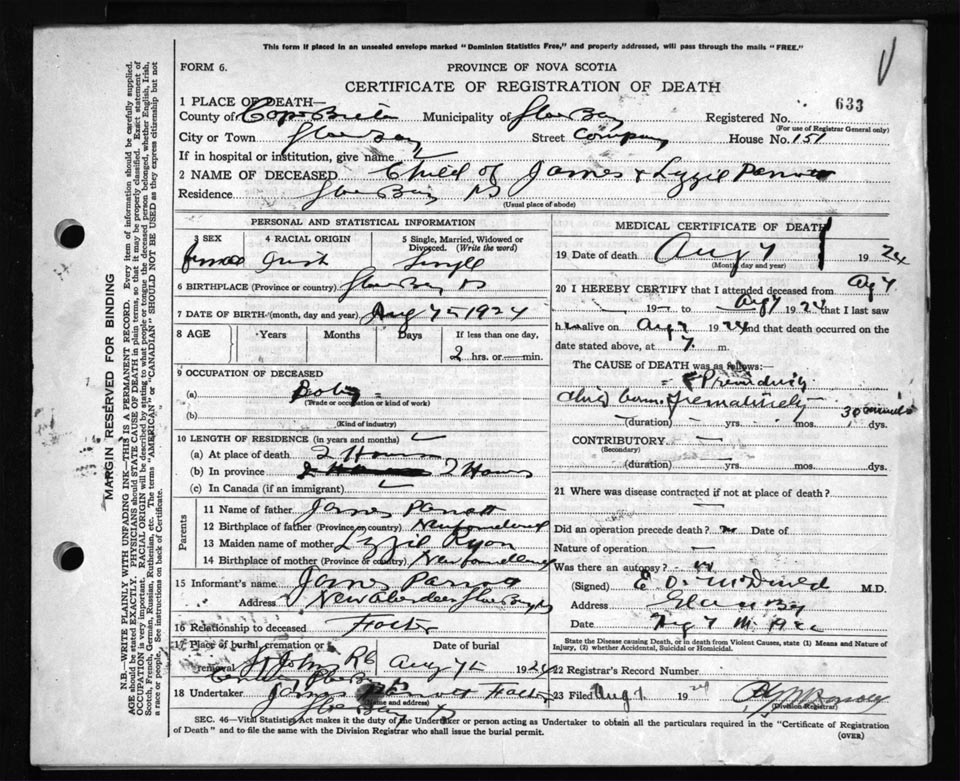 This form if placed in an unsealed envelope marked "Dominion Statistics Free," and properly addressed, will pass through the mails "FREE."
FORM 6.
PROVINCE OF NOVA SCOTIA
CERTIFICATE OF REGISTRATION OF DEATH
1 PLACE OF DEATH—
633
County of Cape Breton Municipality of Glace Bay Registered No.
(For use of Registrar General only)
City or Town Glace Bay Street Company House No. 151
If in hospital or institution, give name
2 NAME OF DECEASED Child of James & Lizzie Parrott
Residence Glace Bay NS
(Usual place of abode)
PERSONAL AND STATISTICAL INFORMATION
3 SEX 4 RACIAL ORIGIN 5 Single, Married, Widowed or Divorced. (Write the word)
female Irish Single
6 BIRTHPLACE (Province or country) Glace Bay NS
7 DATE OF BIRTH (month, day and year) Aug 7th 1924
8 AGE Years Months Days If less than one day,
2 hrs. or — min.
9 OCCUPATION OF DECEASED
(a) Baby
(Trade or occupation or kind of work)
(b)
(Kind of industry)
10 LENGTH OF RESIDENCE (in years and months)
(a) At place of death 2 Hours
(b) In province 2 Hours
(c) In Canada (if an immigrant)
Parents
11 Name of father James Parrott
12 Birthplace of father (Province or country) Newfoundland
13 Maiden name of mother Lizzie Ryan
14 Birthplace of mother (Province or country) Newfoundland
15 Informant's name James Parrott
Address New Aberdeen Glace Bay NS
16 Relationship to deceased Father
17 Place of burial, cremation or removal Date of burial
St John's Aug 7th 1924
18 Undertaker James Parrott Father
(Name and address)
Glace Bay
MEDICAL CERTIFICATE OF DEATH
19 Date of death Aug 7 1924
(Month, day and year)
20 I HEREBY CERTIFY that I attended deceased from Aug 7
19— to Aug 7 1924 that I last saw
h alive on Aug 7 1924 and that death occurred on
date stated above, at 7 m.
The CAUSE of DEATH was as follows:
child born prematurely
(duration) yrs. mos. dys.
CONTRIBUTORY
(Secondary)
(duration) yrs. mos. dys.
21 Where was disease contracted if not at place of death?
Did an operation precede death? no Date of
Nature of operation —
Was there an autopsy?
(Signed) M.D.
Address Glace Bay
Date Aug 7
State the Disease causing Death, or in death from Violent Causes, state (1) Means and Nature of Injury, (2) whether Accidental, Suicidal or Homicidal.
22 Registrar's Record Number
23 Filed Aug 7 1924
(Division Registrar)
SEC. 46—Vital Statistics Act makes it the duty of the Undertaker or person acting as Undertaker to obtain all the particulars required in the "Certificate of Registration
of Death" and to file the same with the Division Registrar who shall issue the burial permit.
(OVER)
MARGIN RESERVED FOR BINDING
N.B.—WRITE PLAINLY WITH UNFADING INK—THIS IS A PERMANENT RECORD. Every item of information should be carefully supplied.
AGE should be stated EXACTLY. PHYSICIANS should STATE CAUSE OF DEATH in plain terms, so that it may be properly classified. Exact statement of
OCCUPATION is very important. RACIAL ORIGIN will be described by stating to what people or tongue the deceased person belonged, whether English, Irish,
Scotch, French, German, Russian, Ruthenian, etc. The terms "AMERICAN" or "CANADIAN" SHOULD NOT BE USED as they express citizenship but not
a race or people. See instructions on back of Certificate.